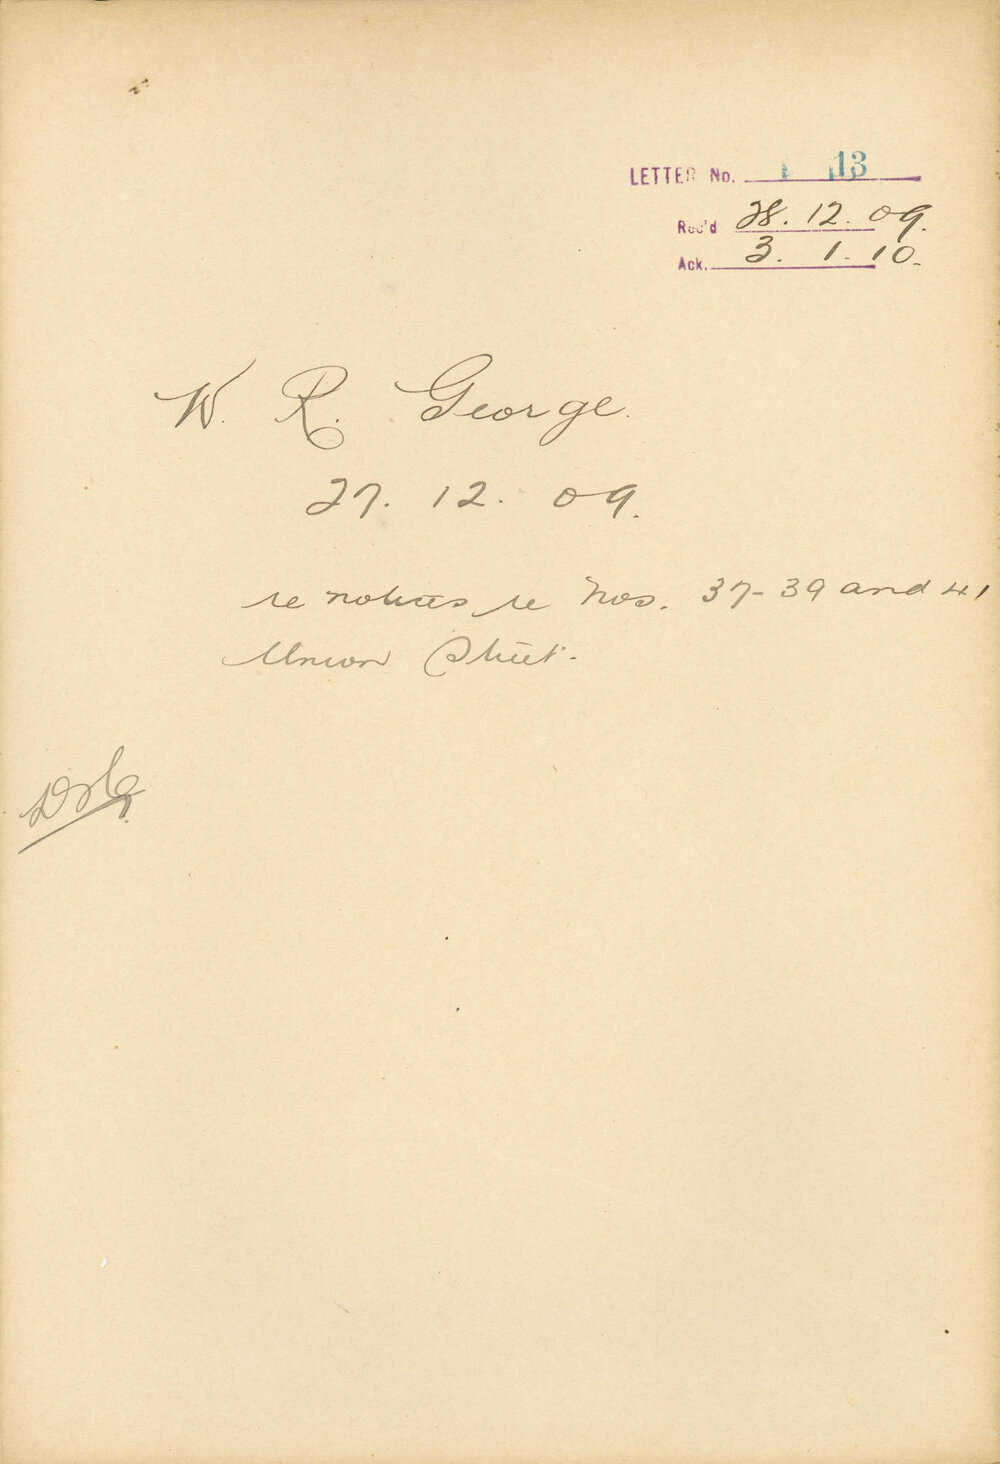 LETTER No. 13
Rec'd 28. 12. 09.
Ack. 3. 1. 10.
W. R. George.
27. 12. 09.
re notices re Nos. 37-39 and 41
Union Street.